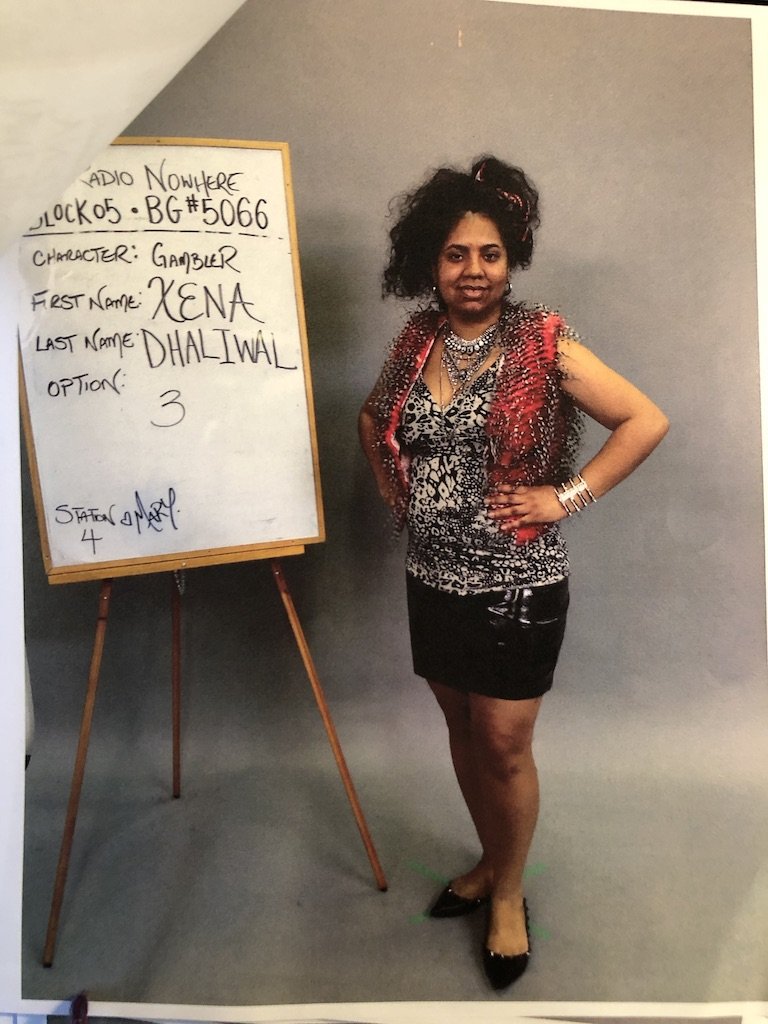 RADIO NOWHERE
BLOCK05 • BG#5066
CHARACTER: GAMBLER
FIRST NAME: XENA
LAST NAME: DHALIWAL
OPTION:
3
STATION MARY.
4